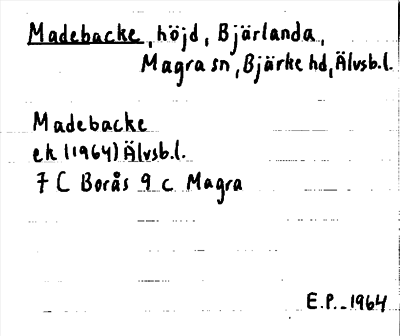 Madebacke, höjd, Bjärlanda,
Magra sn, Bjärke hd, Älvsb.l.
Madebacke
ek (1964) Älvsb.l.
7 C Borås 9 c Magra
E.P. 1964